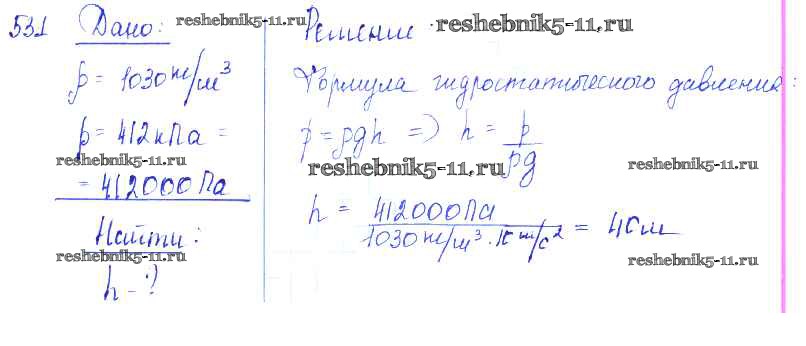 531 Дано:
ρ = 1030 кг/м³
p = 412 кПа =
= 412000 Па
Найти:
h - ?
Решение
Формула гидростатического давления:
p = ρgh => h = p/ρg
h = 412000 Па / 1030 кг/м³ · 10 м/с² = 40 м
reshebnik5-11.ru
reshebnik5-11.ru
reshebnik5-11.ru
reshebnik5-11.ru
reshebnik5-11.ru
reshebnik5-11.ru
reshebnik5-11.ru